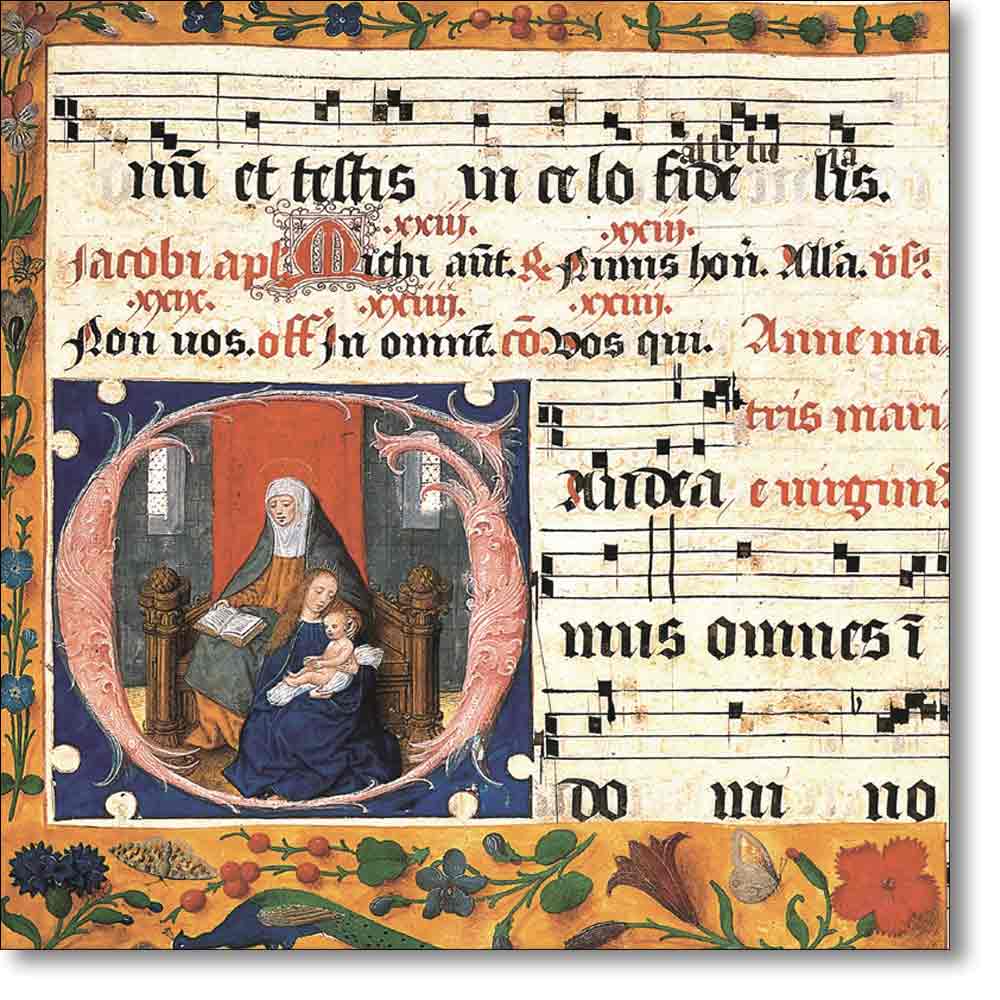 nū et testis in ce lo fide lis.
alle lu ia
.xxiij. .xxiij.
Jacobi apl Michi aūt. R Nimis hon. Alla. v̄s.
.xxix. .xxiiij. .xxiiij.
Non vos. off In omnē. cō. Vos qui. Anne ma
tris mari
Gaudea e virginis
mus omnes ī
do mi no